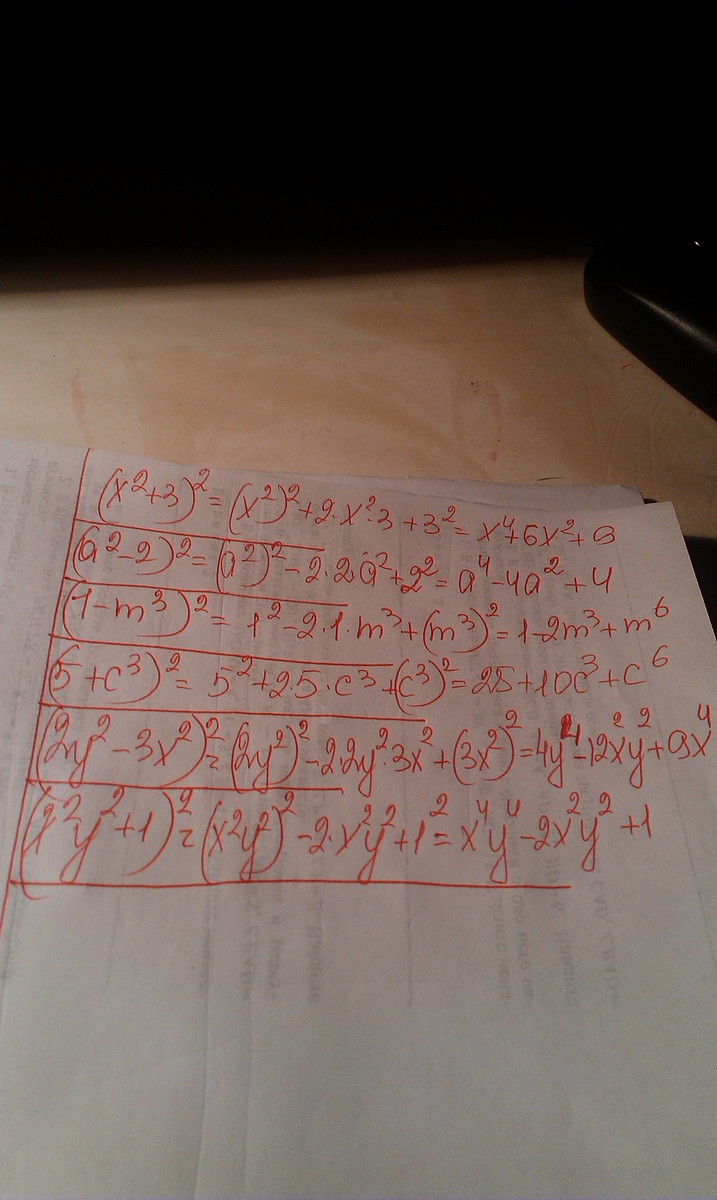 (x²+3)² = (x²)²+2·x²·3+3² = x⁴+6x²+9
(a²-2)² = (a²)²-2·2a²+2² = a⁴-4a²+4
(1-m³)² = 1²-2·1·m³+(m³)² = 1-2m³+m⁶
(5+c³)² = 5²+2·5·c³+(c³)² = 25+10c³+c⁶
(2y²-3x²)² = (2y²)²-2·2y²·3x²+(3x²)² = 4y⁴-12x²y²+9x⁴
(x²y²+1)² = (x²y²)²-2·x²y²+1² = x⁴y⁴-2x²y²+1